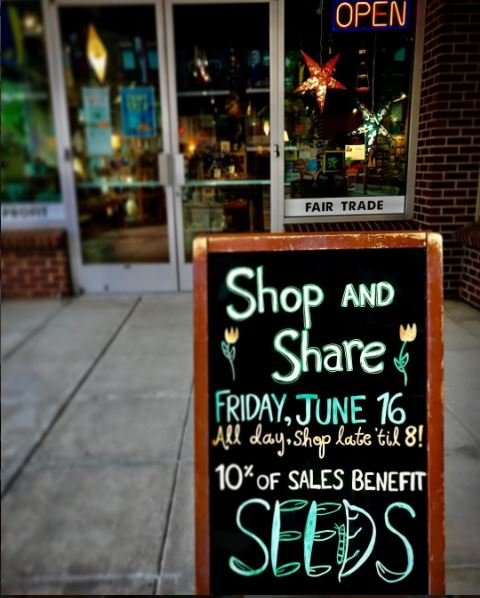 OPEN
PROFIT
FAIR TRADE
Shop AND
Share
FRIDAY, JUNE 16
All day, shop late 'til 8!
10% OF SALES BENEFIT
SEEDS